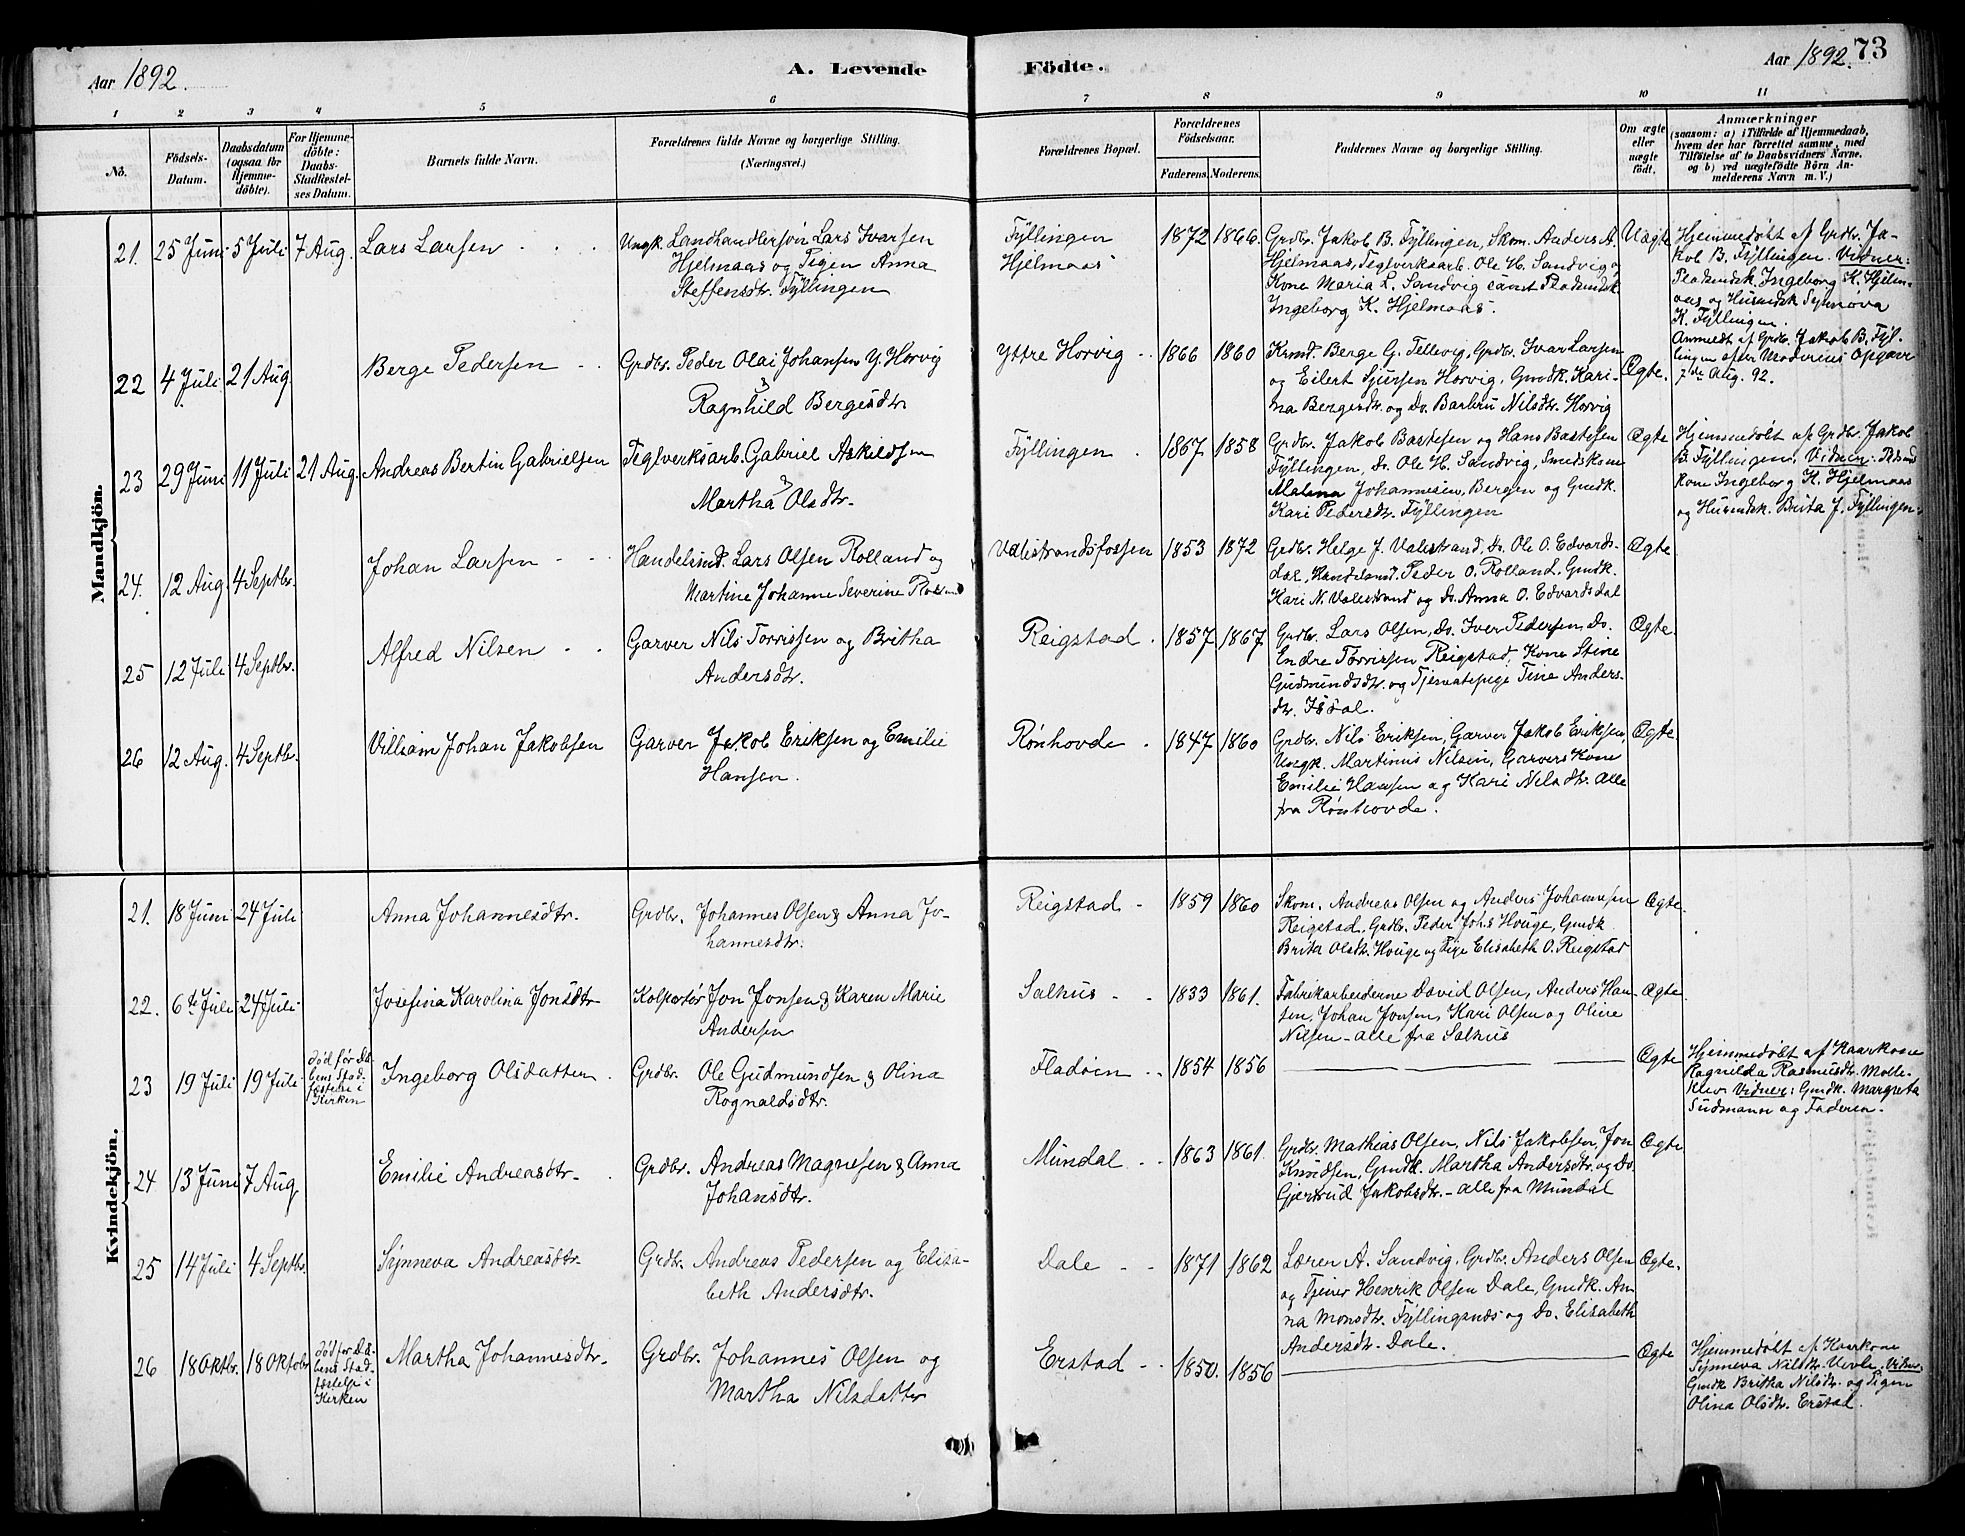 Aar 1892.
A. Levende Födte.
Aar 1892. 73
1 2 3 4 5 6 7 8 9 10 11
No.
Födsels-
Datum.
Daabsdatum
(ogsaa for
Hjemme-
döbte).
For Hjemme-
döbte:
Daabs-
Stadfæstel-
ses Datum.
Barnets fulde Navn.
Forældrenes fulde Navne og borgerlige Stilling.
(Næringsvei.)
Forældrenes Bopæl.
Forældrenes
Födselsaar.
Faderens. Moderens.
Faddernes Navne og borgerlige Stilling.
Om ægte
eller
uægte
födt.
Anmærkninger
(saasom: a) i Tilfælde af Hjemmedaab,
hvem der har forrettet samme, med
Tilföielse af to Daabsvidners Navne.
og b) ved uægtefödte Börn An-
melderens Navn m. V.)
Mandkjön.
21. 25 Juni 5 Juli 7 Aug. Lars Larsen
Ungk. Landhandlersön Lars Ivarsen
Hjelmaas og Pigen Anna
Steffensdtr. Fyllingen
Fyllingen
Hjelmaas
1872 1866.
Grdbr. Jakob B. Fyllingen, Skom. Anders A.
Hjelmaas, Teglverksarb. Ole H. Sandvig og
Kone Maria L. Sandvig samt Pladsmdsk.
Ingeborg K. Hjelmaas.
Uægte
Hjemmedöbt af Grdbr. Ja-
kob B. Fyllingen. Vidner:
Pladsmdsk. Ingeborg K. Hjelm-
aas og Husmdsk Synnøva
K. Fyllingen.
Anmeldt af Grdb. Jakob B. Fyl-
lingen efter Moderens Opgave
7de Aug. 92.
22 4 Juli 21 Aug Berge Pedersen
Grdbr. Peder Olai Johansen Y. Horvig
&
Ragnhild Bergesdtr
Yttre Horvig
1866 1860
Krmd. Berge G. Tellevig, Grdbr. Ivar Larsen
og Eilert Sjursen Horvig, Gmdk. Kari-
na Bergesdtr. og Do. Barbru Nilsdtr. Horvig
Ægte.
23 29 Juni 11 Juli 21 Aug. Andreas Bertin Gabrielsen
Teglverksarb. Gabriel Askildsen
&
Martha Olsdtr.
Fyllingen
1867 1858
Grdbr. Jakob Bastesen og Hans Bastesen
Fyllingen, Do. Ole H. Sandvig, Smedskone
Malena Johannesen, Bergen og Gmdk.
Kari Pedersdtr. Fyllingen
Ægte
Hjemmedöbt af Grdbr. Jakob
B. Fyllingen, Vidner: Pladsmd
kone Ingeborg K. Hjelmaas
og Husmdsk. Brita J. Fyllingen.
24. 12 Aug. 4 Septbr. Johan Larsen
Handelsmd. Lars Olsen Rolland og
Martine Johanne Severine
Valestrandsfossen
1853 1872
Grdbr. Helge J. Valestrand, Do. Ole O. Edvards-
dal, Handelsmd. Peder O. Rolland. Gmdk.
Kari N. Valestrand og Do. Anna O. Edvardsdal
Ægte
25 12 Juli 4 Septbr. Alfred Nilsen
Garver Nils Torrissen og Britha
Andersdtr.
Reigstad
1857 1867
Grdbr. Lars Olsen, Do. Iver Pedersen, Do.
Endre Torrissen Reigstad, Kone Stine
Gudmundsdtr. og Tjenestepige Tine Anders-
dtr. Isdal.
Ægte.
26 12 Aug. 4 Septbr. Villiam Johan Jakobsen
Garver Jakob Eriksen og Emilie
Hansen.
Rønhovde
1847 1860
Grdbr. Nils Eriksen, Garver Jakob Eriksen,
Ungk. Martinus Nilsen, Garvers Kone
Emilie Hansen og Kari Nilsdtr. alle
fra Rønhovde.
Ægte.
Kvindekjön.
21. 18 Juni 24 Juli Anna Johannesdtr.
Grdbr. Johannes Olsen & Anna Jo-
hannesdtr.
Reigstad
1859 1860
Skom. Andreas Olsen og Anders Johannesen
Reigstad, Grdbr. Peder Johs Houge, Gmdk.
Brita Olsdtr. Houge og Pige Elisabeth O. Reigstad
Ægte.
22. 6te Juli 24 Juli Josefina Karolina Jonsdtr
Kolportør Jon Jonsen & Karen Marie
Andersen
Salhus
1833 1861.
Fabrikarbeiderne David Olsen, Anders Han-
sen, Johan Jonsen, Kari Olsen og Oline
Nilsen - alle fra Salhus
Ægte.
23 19 Juli 19 Juli
död før Daa-
bens Stad-
fæstelse i
Kirken
Ingeborg Olsdatter
Grdbr. Ole Gudmundsen & Olina
Rognaldsdtr.
Fladöen
1854 1856
Ægte
Hjemmedöbt af Kaarkone
Ragnilda Rasmusdtr. Molle-
klev. Vidner: Gmdk. Margreta
Sudmann og Faderen.
24 13 Juni 7 Aug Emilie Andreasdtr.
Grdbr. Andreas Magnesen & Anna
Johansdtr.
Mundal
1863 1861.
Grdbr. Mathias Olsen, Nils Jakobsen, Jon
Knudsen, Gmdk. Martha Andersdtr. og Do.
Gjertrud Jakobsdtr. - alle fra Mundal
Ægte
25 14 Juli 4 Septbr. Synneva Andreasdtr.
Grdbr. Andreas Pedersen og Elisa-
beth Andersdtr.
Dale
1871 1862
Lærer A. Sandvig, Grdbr. Anders Olsen
og Tjener Henrik Olsen Dale, Gmdk. An-
na Monsdtr. Fyllingsnæs og Do. Elisabeth
Andersdtr. Dale.
Ægte.
26 18 Oktbr. 18 Oktober
död før Daa-
bens Stad-
fæstelse i
Kirken
Martha Johannesdtr.
Grdbr. Johannes Olsen og
Martha Nilsdatter
Erstad
1850. 1856
Ægte
Hjemmedöbt af Kaarkone
Synneva Nilsdtr. Vidner
Gmdk Britha Nilsdtr. og Pigen
Olina Olsdtr. Erstad.